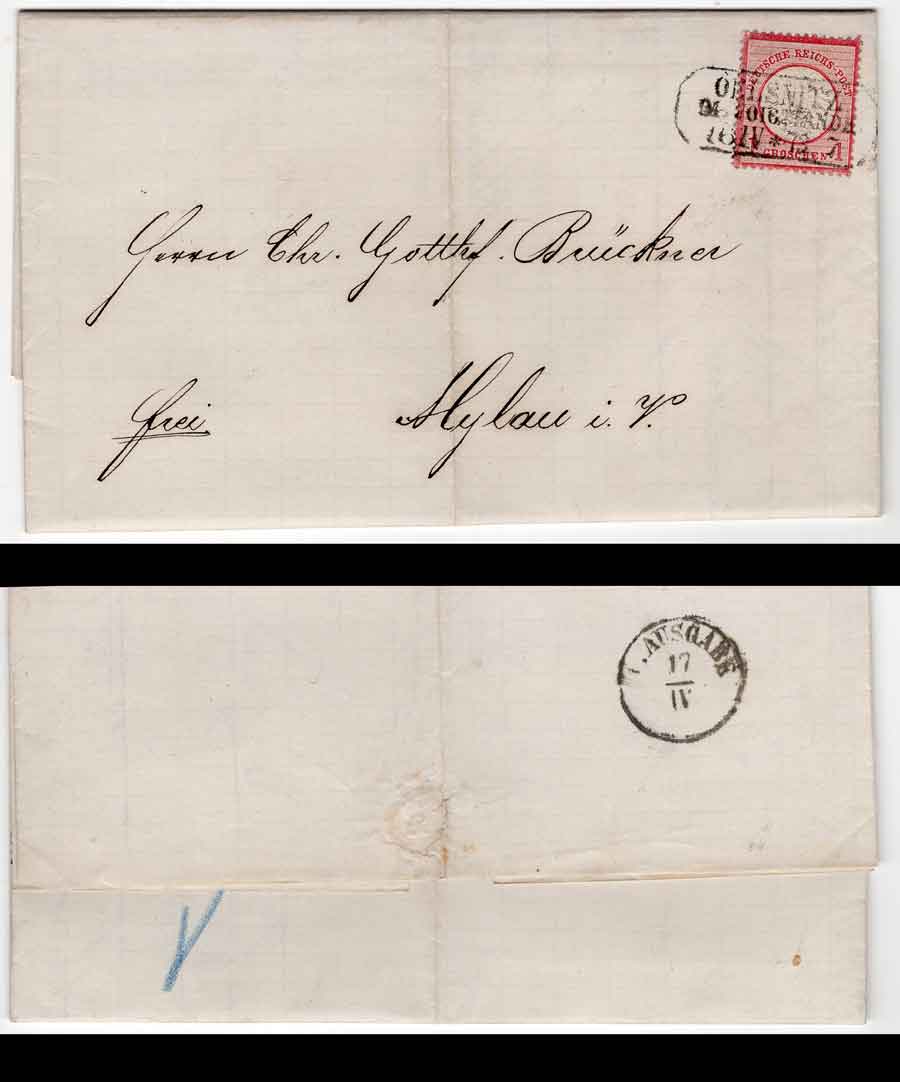 DEUTSCHE REICHS-POST
OELSNITZ
IM VOIGTLANDE
16 IV * 73 7
1 GROSCHEN 1
Herrn Chr. Gottlf. Brückner
frei Mylau i. V.
AUSGABE
17
IV